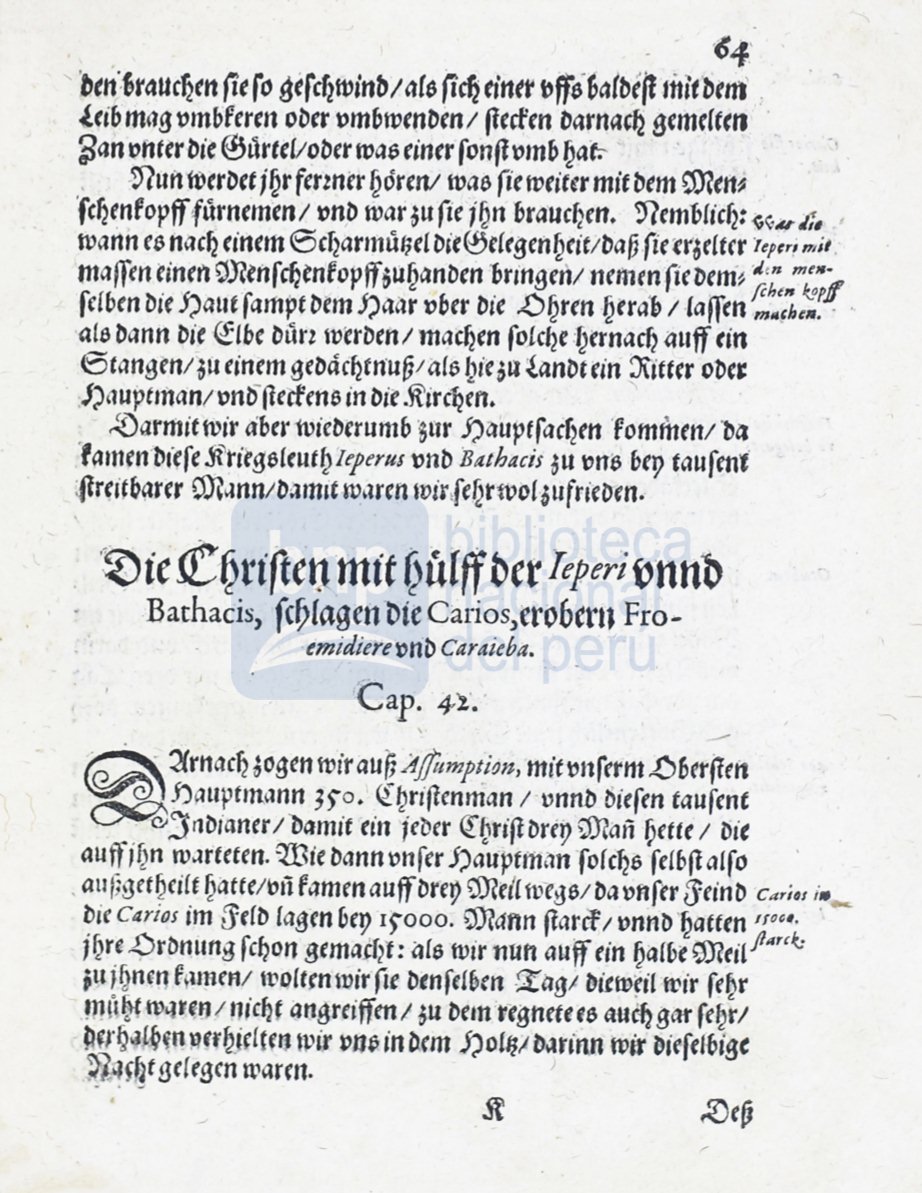 64
den brauchen sie so geschwind / als sich einer vffs baldest mit dem
Leib mag vmbkeren oder vmbwenden / stecken darnach gemelten
Zan vnter die Gürtel / oder was einer sonst vmb hat.
Nun werdet jhr ferrner hören / was sie weiter mit dem Men-
schenkopff fürnemen / vnd war zu sie jhn brauchen. Nemblich:
wann es nach einem Scharmützel die Gelegenheit / daß sie erzelter
massen einen Menschenkopff zuhanden bringen / nemen sie dem-
selben die Haut sampt dem Haar vber die Ohren herab / lassen
als dann die Elbe dürr werden / machen solche hernach auff ein
Stangen / zu einem gedächtnuß / als hie zu Landt ein Ritter oder
Hauptman / vnd steckens in die Kirchen.
Was die
Ieperi mit
den men-
schen kopff
machen.
Darmit wir aber wiederumb zur Hauptsachen kommen / da
kamen diese Kriegsleuth Ieperus vnd Bathacis zu vns bey tausent
streitbarer Mann / damit waren wir sehr wol zufrieden.
Die Christen mit hülff der Ieperi vnnd
Bathacis, schlagen die Carios, erobern Fro-
emidiere vnd Caraieba.
Cap. 42.
DArnach zogen wir auß Assumption, mit vnserm Obersten
Hauptmann 350. Christenman / vnnd diesen tausent
Indianer / damit ein jeder Christ drey Mañ hette / die
auff jhn warteten. Wie dann vnser Hauptman solchs selbst also
außgetheilt hatte / vñ kamen auff drey Meil wegs / da vnser Feind
die Carios im Feld lagen bey 15000. Mann starck / vnnd hatten
jhre Ordnung schon gemacht: als wir nun auff ein halbe Meil
zu jhnen kamen / wolten wir sie denselben Tag / dieweil wir sehr
müht waren / nicht angreiffen / zu dem regnete es auch gar sehr /
derhalben verhielten wir vns in dem Holtz / darinn wir dieselbige
Nacht gelegen waren.
Carios in
15000.
starck.
K
Deß
bnp biblioteca
nacional
del perú